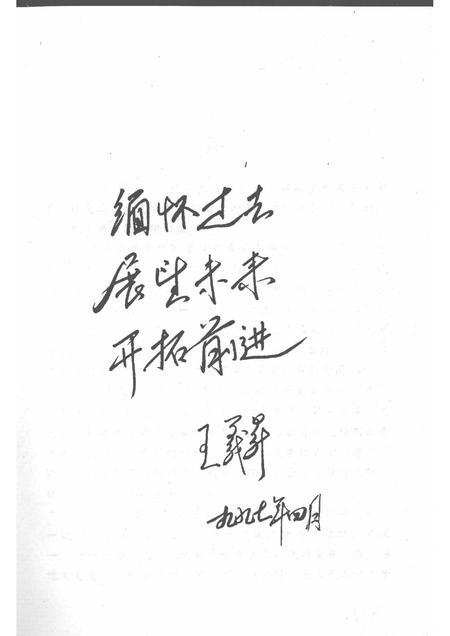 缅怀过去
展望未来
开拓前进
王义昇
一九九七年四月